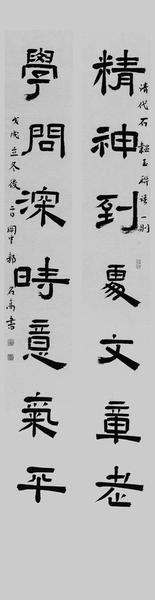 清代石韞玉聯語一則
精神到處文章老
學問深時意氣平
戊戌立冬後二日閩中郭石書